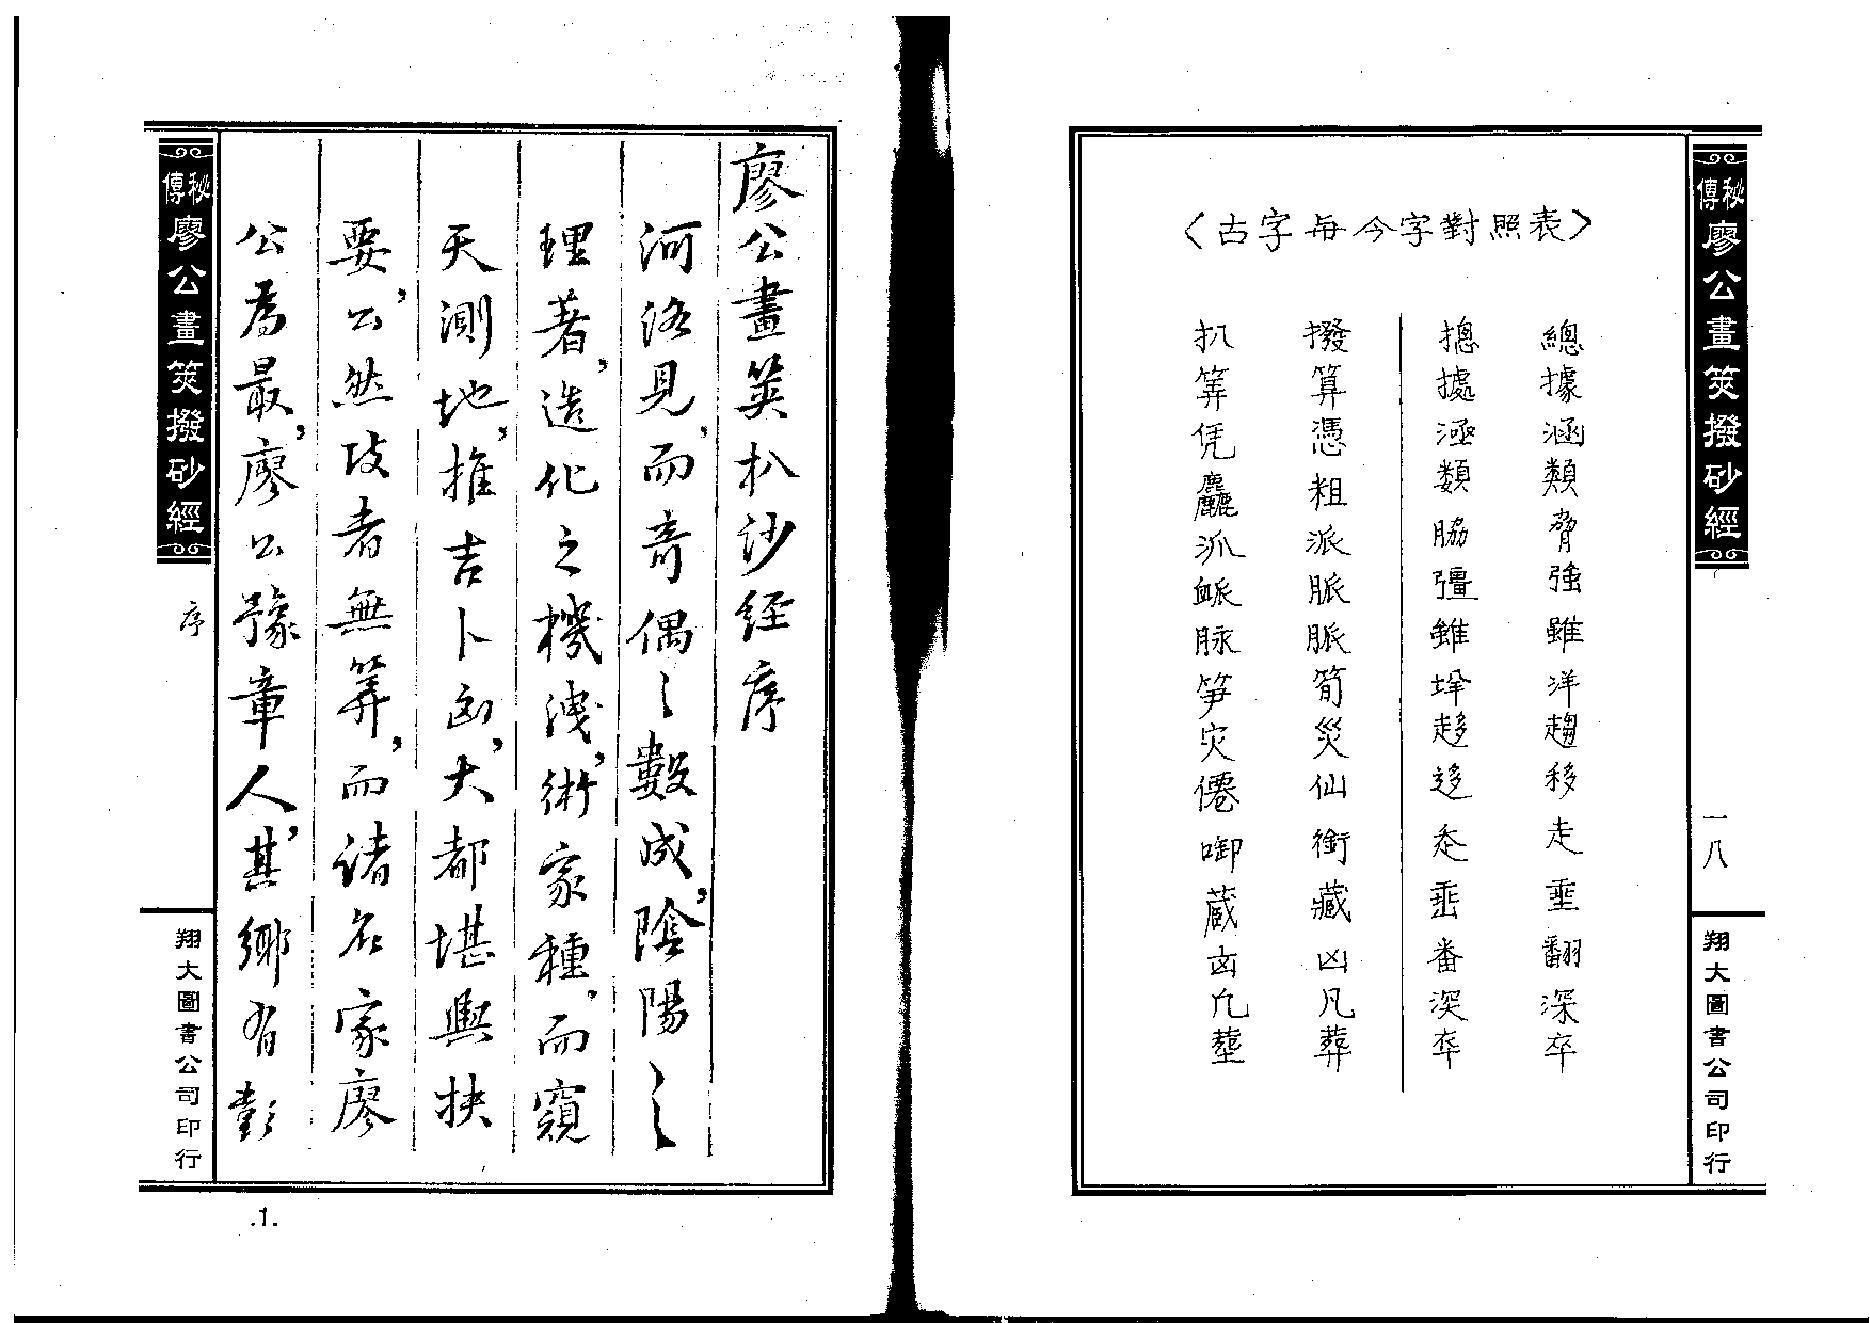 秘傳廖公畫筴撥砂經
一八
翔大圖書公司印行
〈古字每今字對照表〉
總據涵類脅強雖洋趨移走垂翻深卒
摠㨿涵𩔖脇彊雖垟趍迻赱埀畨㴱卒
撥算憑粗派脈脈筍災仙銜藏凶凡葬
扒筭凭麤𣲖衇脉笋灾僊啣蔵㐫凢塟
廖公畫筴扒沙经序
河洛見,而竒偶之數成,陰陽之
理著,造化之機洩,術家種,而窺
天測地,推吉卜㐫,大都堪輿扶
要,公然攷者無筭,而諸名家廖
公為最,廖公豫章人,其鄉有彭
秘傳廖公畫筴撥砂經
序
翔大圖書公司印行
.1.